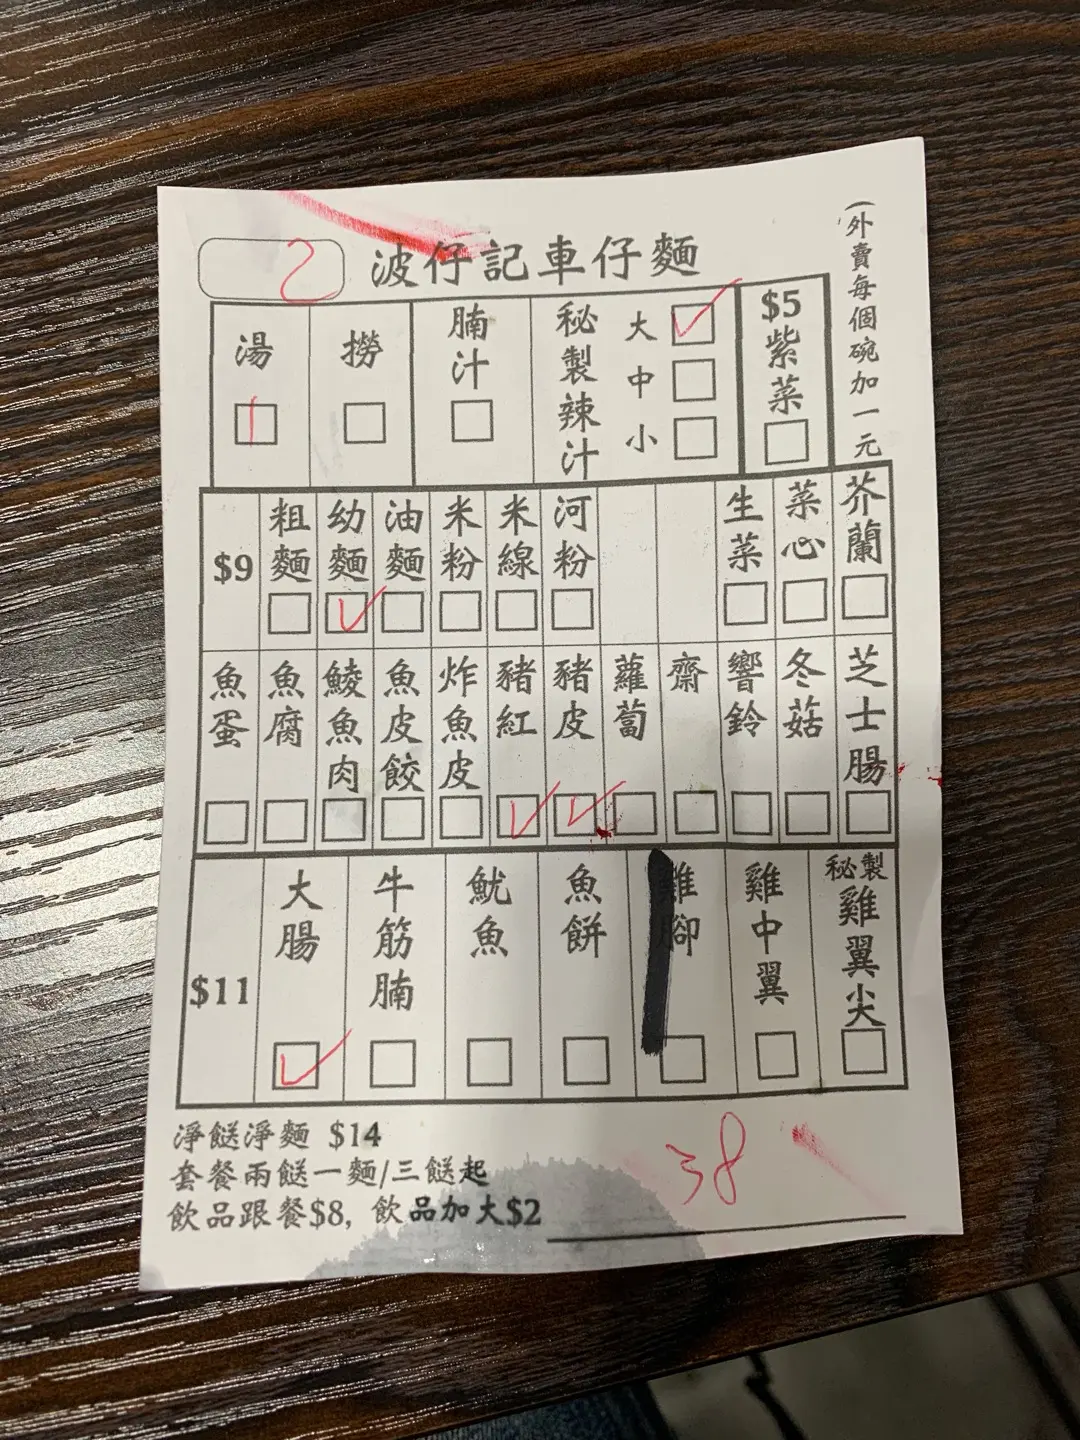 2
波仔記車仔麵
(外賣每個碗加一元
湯
撈
腩汁
秘製辣汁
大
中
小
$5
紫菜
$9
粗麵
幼麵
油麵
米粉
米線
河粉
生菜
菜心
芥蘭
魚蛋
魚腐
鯪魚肉
魚皮餃
炸魚皮
豬紅
豬皮
蘿蔔
齋
響鈴
冬菇
芝士腸
$11
大腸
牛筋腩
魷魚
魚餅
雞腳
雞中翼
秘製雞翼尖
淨餸淨麵 $14
套餐兩餸一麵/三餸起
飲品跟餐$8, 飲品加大$2
38